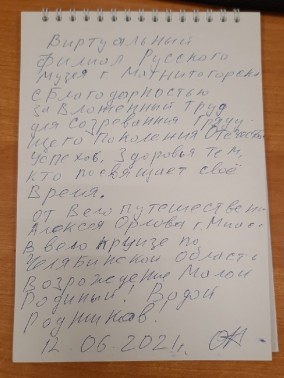 Виртуальный
филиал Русского
музея г Магнитогорска
с Благодарностью
за Вложенный Труд
для Созревания Гряду-
щего Поколения Отечества
Успехов, Здоровья Тем,
кто посвящает своё
Время.
от Велопутешественн
Алексея Орлова г. Миасс
В велокруизе по
Челябинской Область
Возрождение Малой
Родины! Водой
Родников!
12.06.2021г.